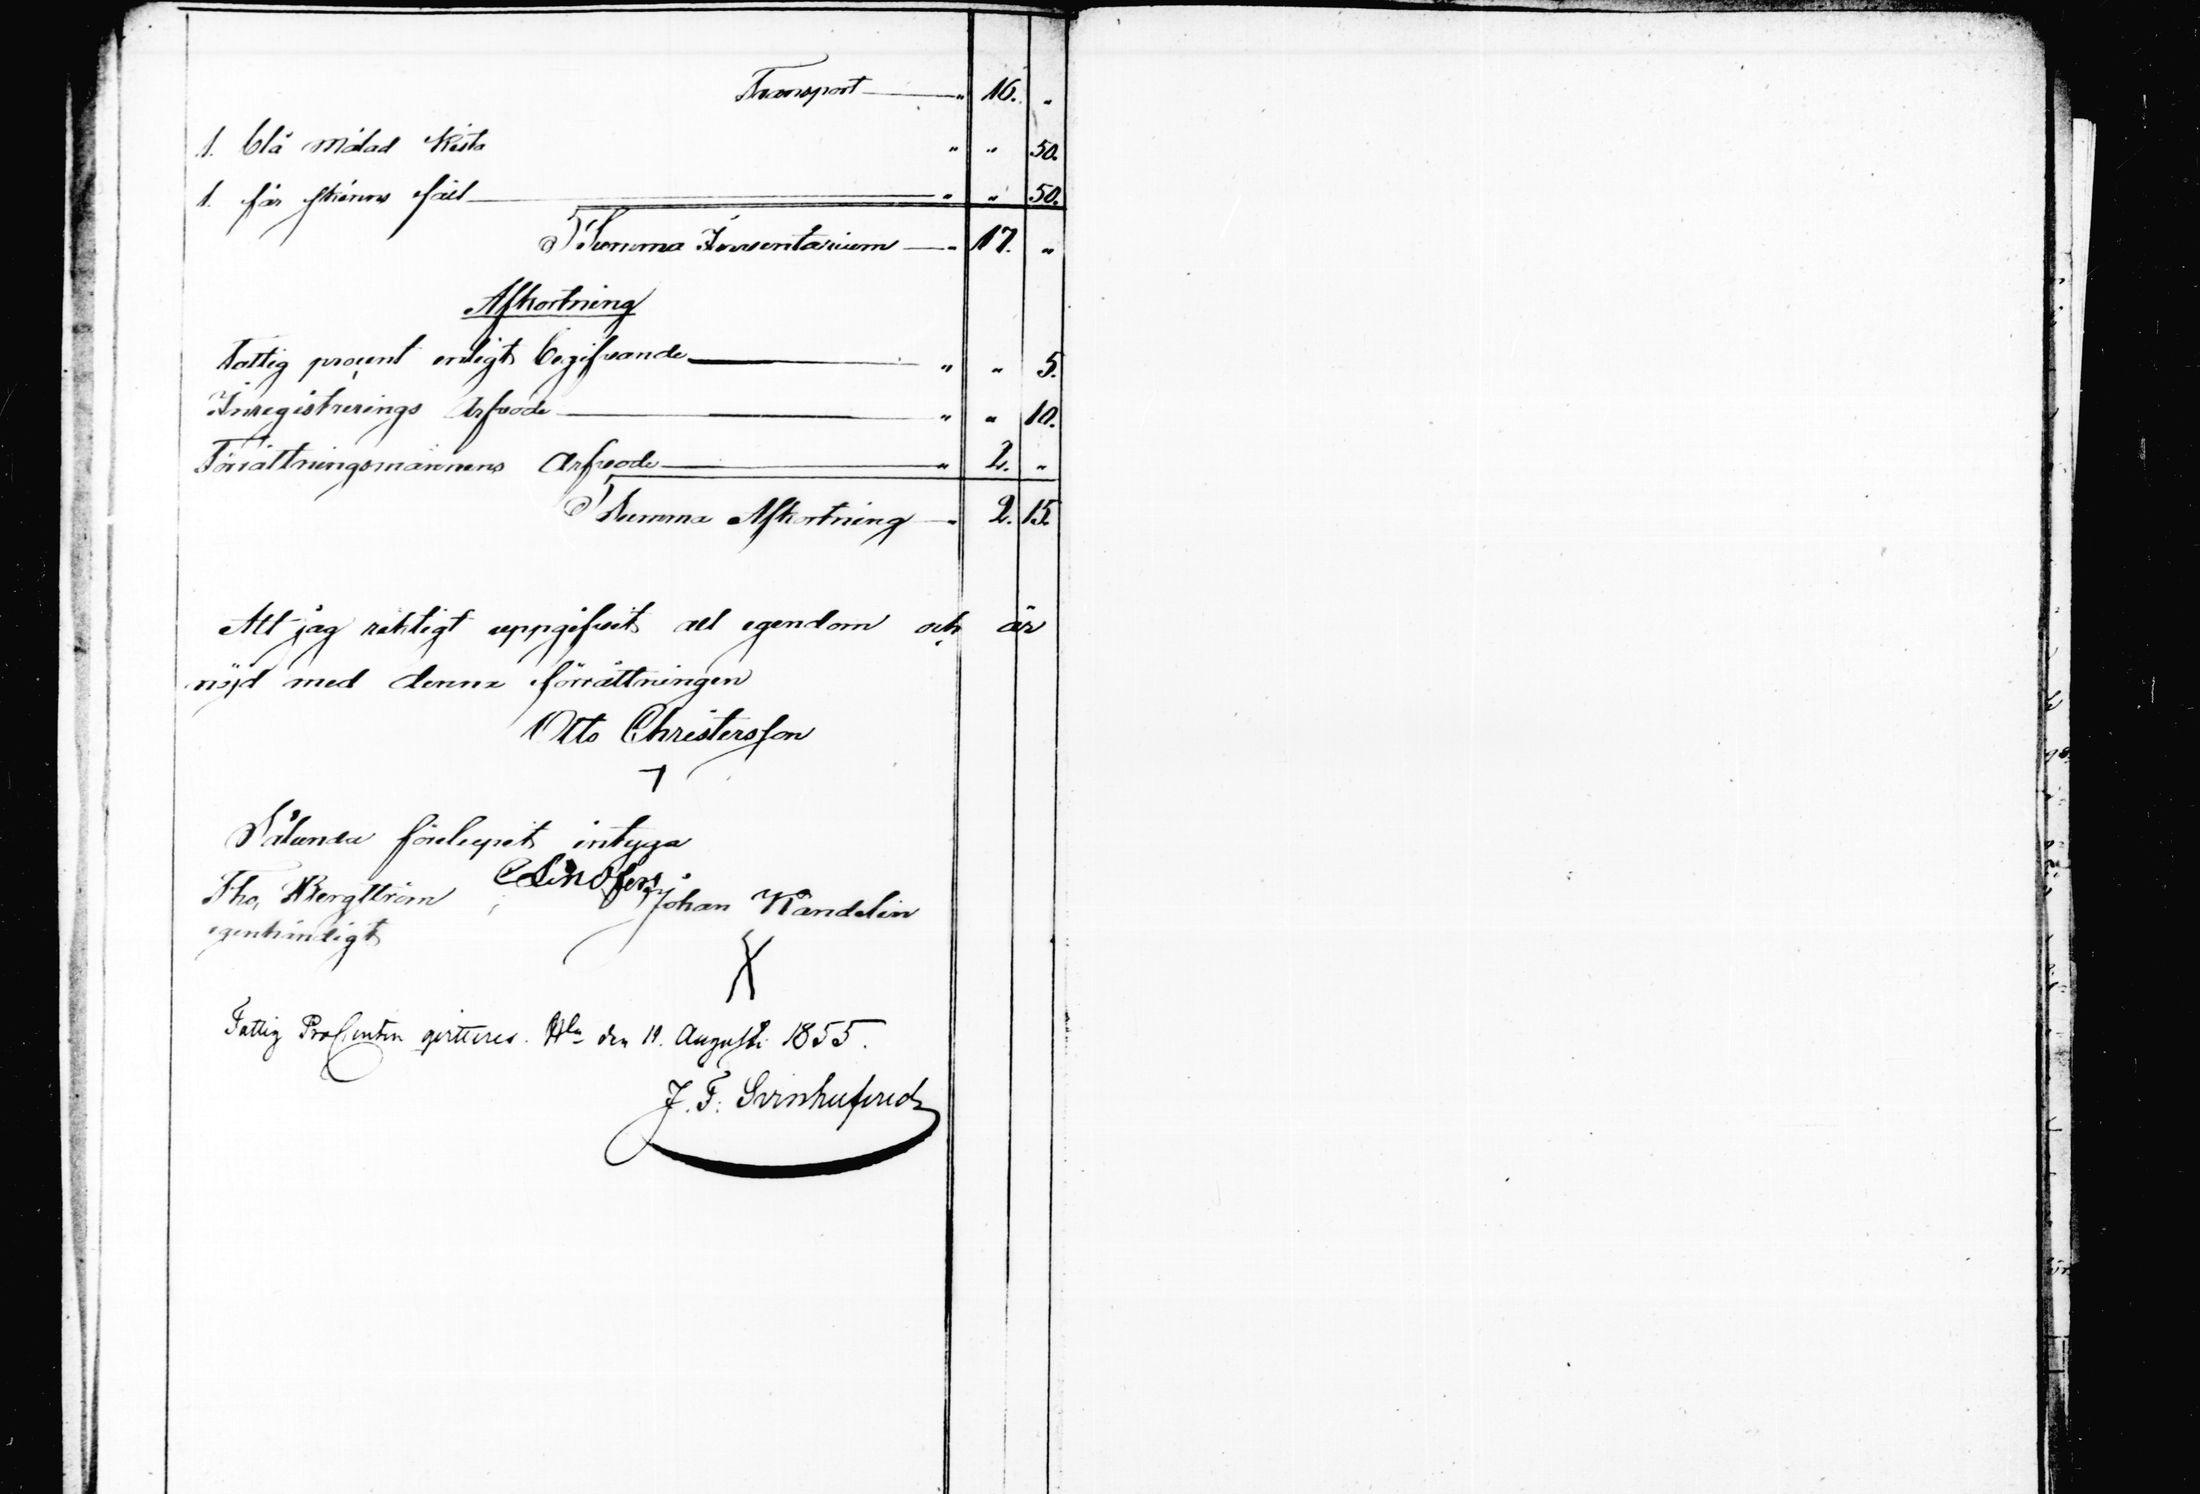 Transport — " 16. "
1. blå målad Kista " " 50.
1. får skinns fäll — " " 50.
Summa Inventarium — " 17. "
Afkortning
Fattig procent enligt begifvande — " " 5.
Inregistrerings Arfvode — " " 10.
Förrättningsmännens Arfvode — " 2. "
Summa Afkortning — " 2. 15.
Att jag riktigt uppgifvit all egendom och är
nöjd med denna förrättningen
Otto Christersson
Sålunda förelupit intyga
Tho, Bergström Johan Kandelin
egenhändigt
Fattig Procenten qvitteras. den 19. Augusti 1855.
J. F. Svinhufvud